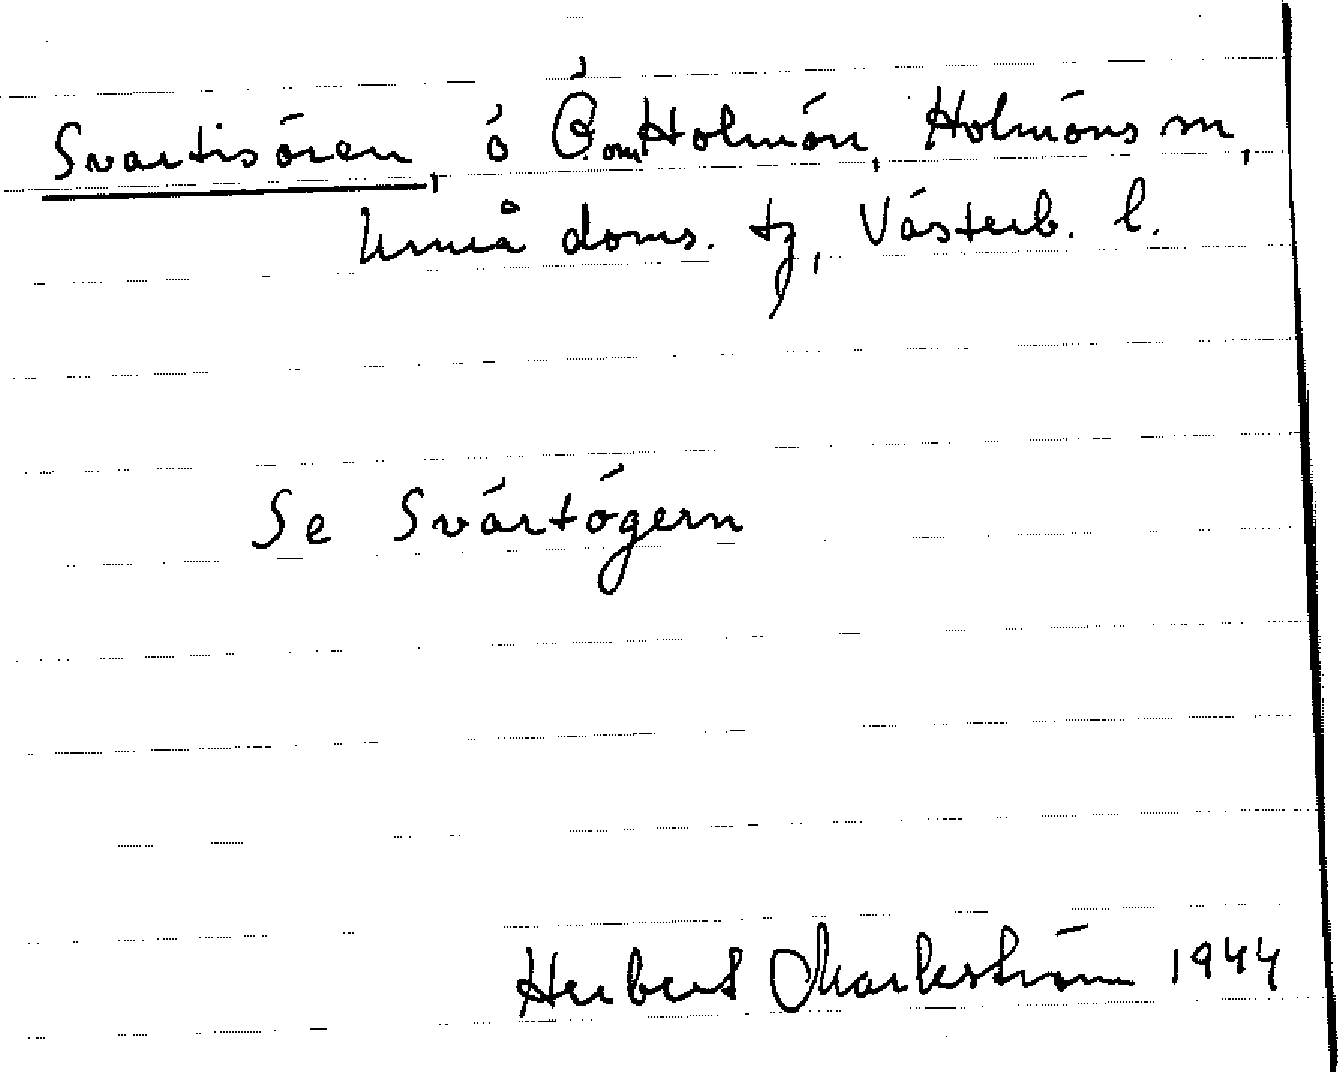 Svartisören, ö Ö om Holmön, Holmöns sn,
Umeå doms. tg, Västerb. l.
Se Svärtögern
Herbert Markström 1944